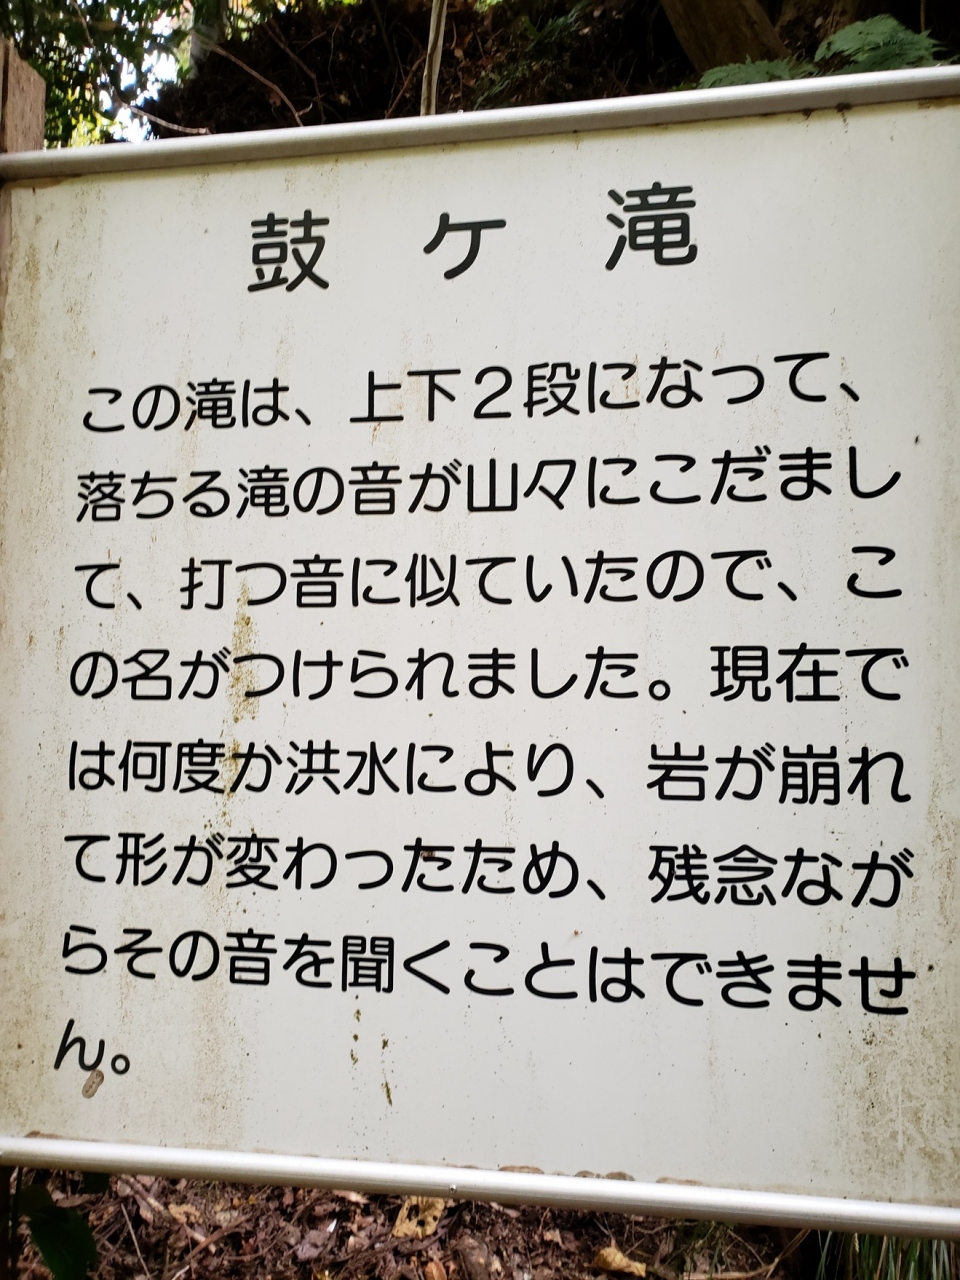 鼓ケ滝
この滝は、上下２段になって、
落ちる滝の音が山々にこだまし
て、打つ音に似ていたので、こ
の名がつけられました。現在で
は何度か洪水により、岩が崩れ
て形が変わったため、残念なが
らその音を聞くことはできませ
ん。